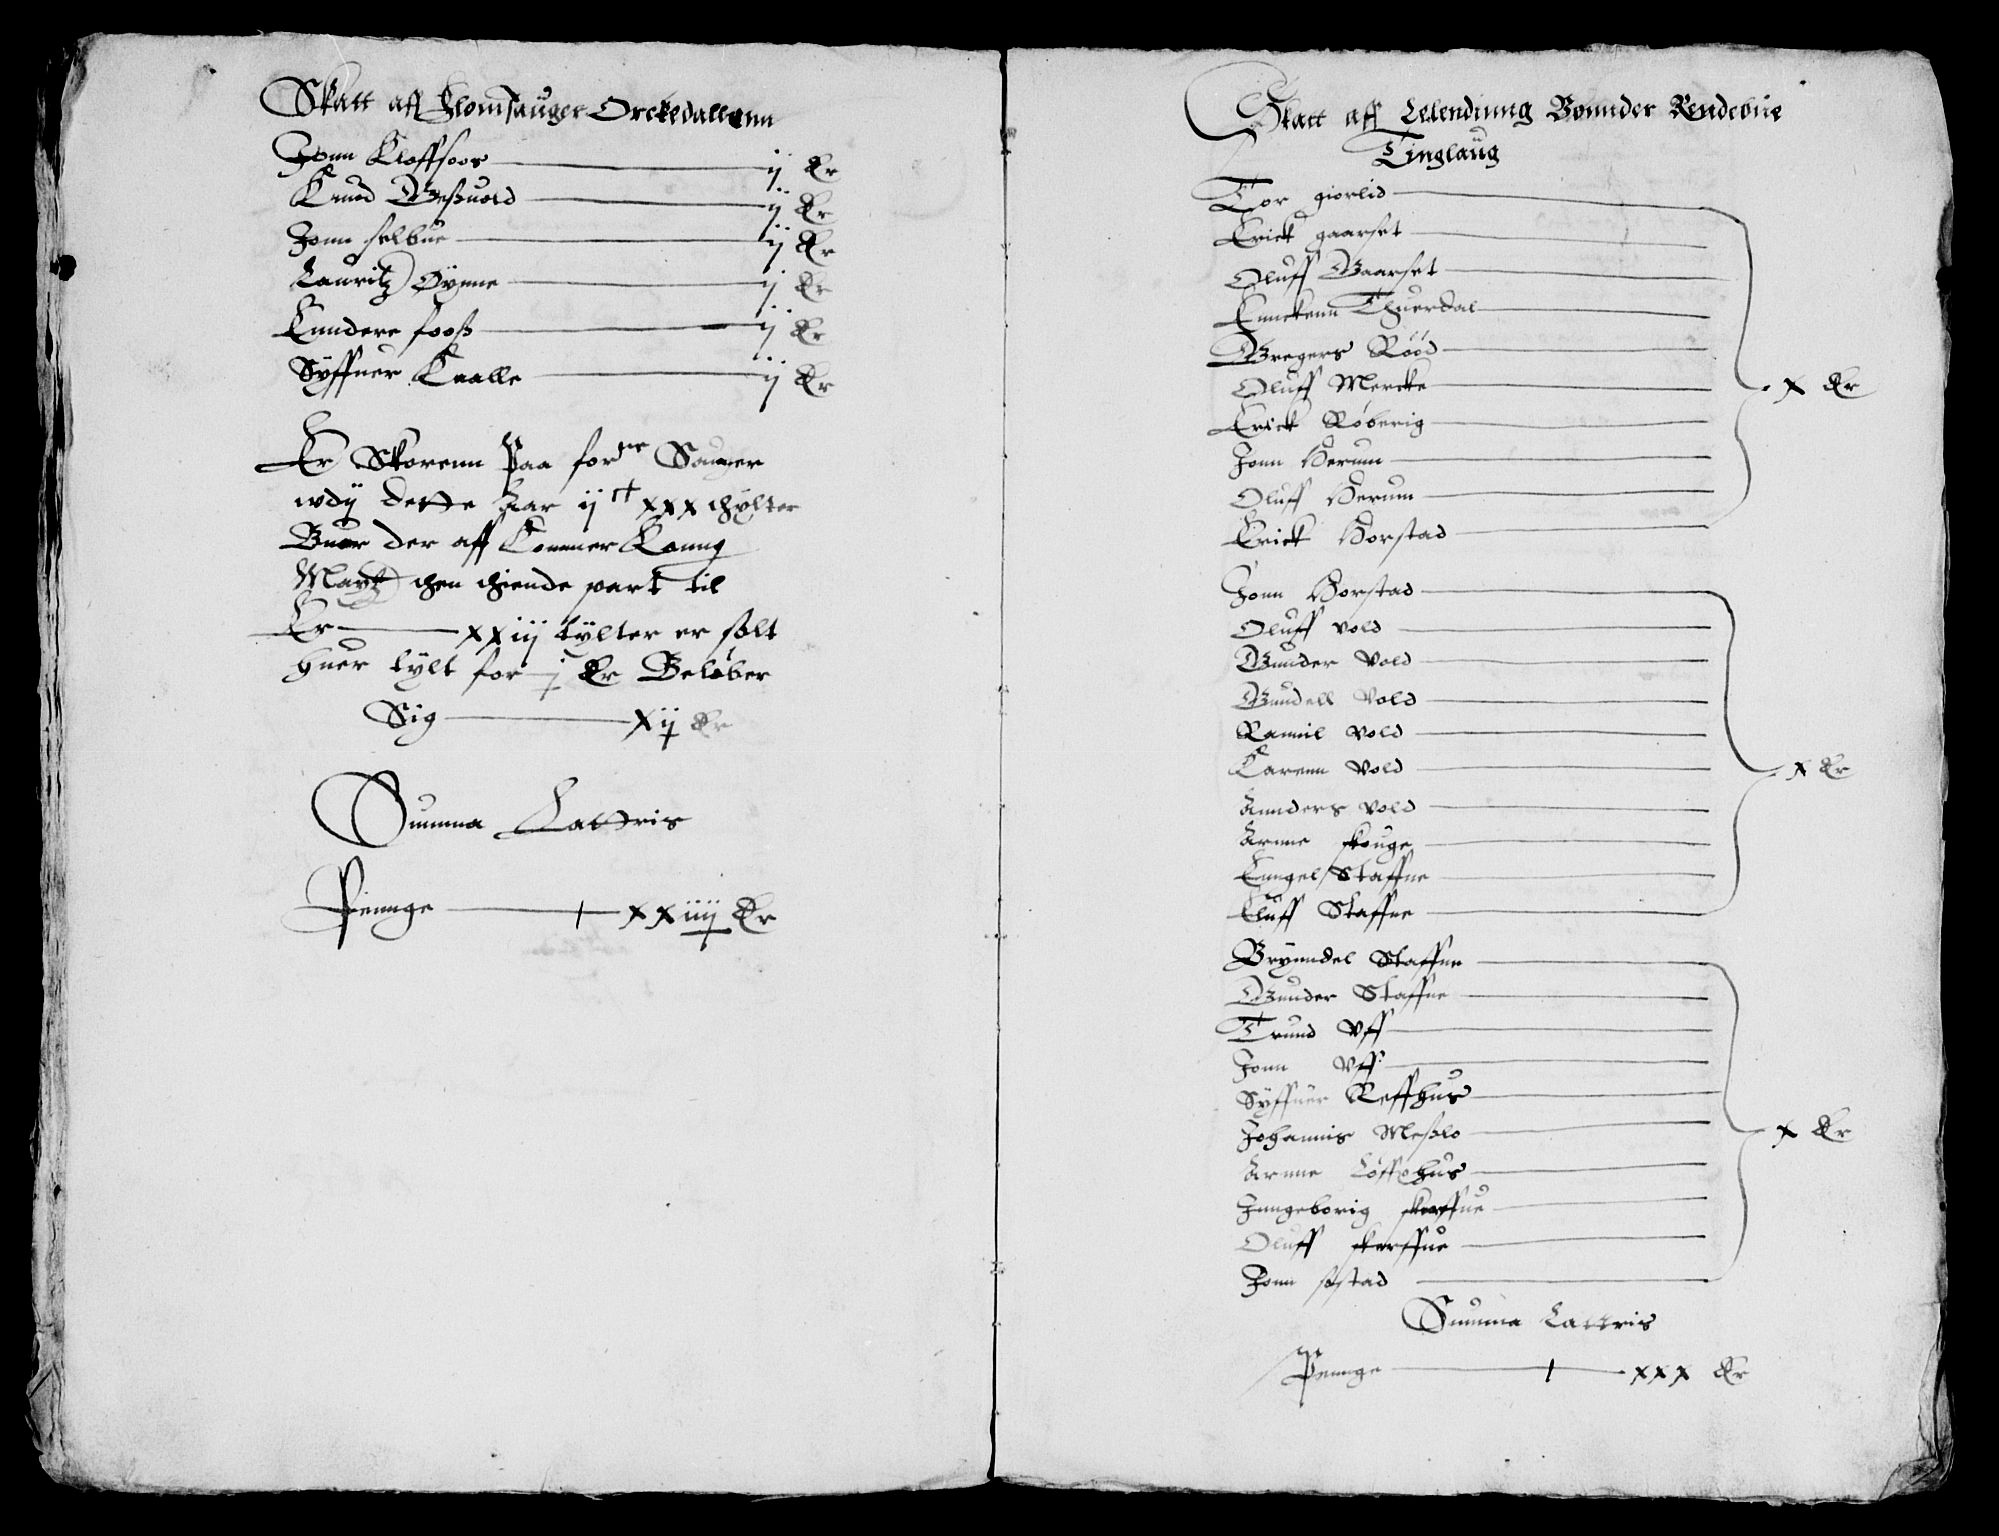 Skatt aff Flomsauger Orckedallenn
Jonn Kloffsoos ij Dr
Knud Gresuold ij Dr
Jonn selbue ij Dr
Lauritz Øyenne ij Dr
Enndere fooss ij Dr
Syffuer Kaalle ij Dr
Er Skorenn Paa forne Sauger
wdj dette Aar ij ct xxx thylter
Buer der aff Kommer Konng
Maytz then thiende part til
Er xxiij tylter er solt
huer tylt for j Dr Beløber
Sig xij Dr
Summa Lattris
Penge xxiiij Dr
Skatt aff Ødendinng Bonnder Rendebue
Tinglaug
Tor giorlid
Erick gaarset
Oluff Gaarset
Ennekenn Thuerdal
Gregers Røød
Oluff Mercke
Erick Røberig
Jonn Herum
Oluff Herum
Erick Horstad
x Dr
Jonn Horstad
Oluff vold
Gunder vold
Gundell vold
Rannil vold
Karenn vold
Annders vold
Arnne skouge
Engel Staffne
Eluff Staffne
x Dr
Brynndel Staffne
Gunder Staffne
Trund Vff
Jonn Vff
Syffuer Reffhus
Johannis Meslo
Arnne Løffhus
Inngeborig skerffue
Oluff skerffue
Jonn søstad
x Dr
Summa Lattris
Penge xxx Dr